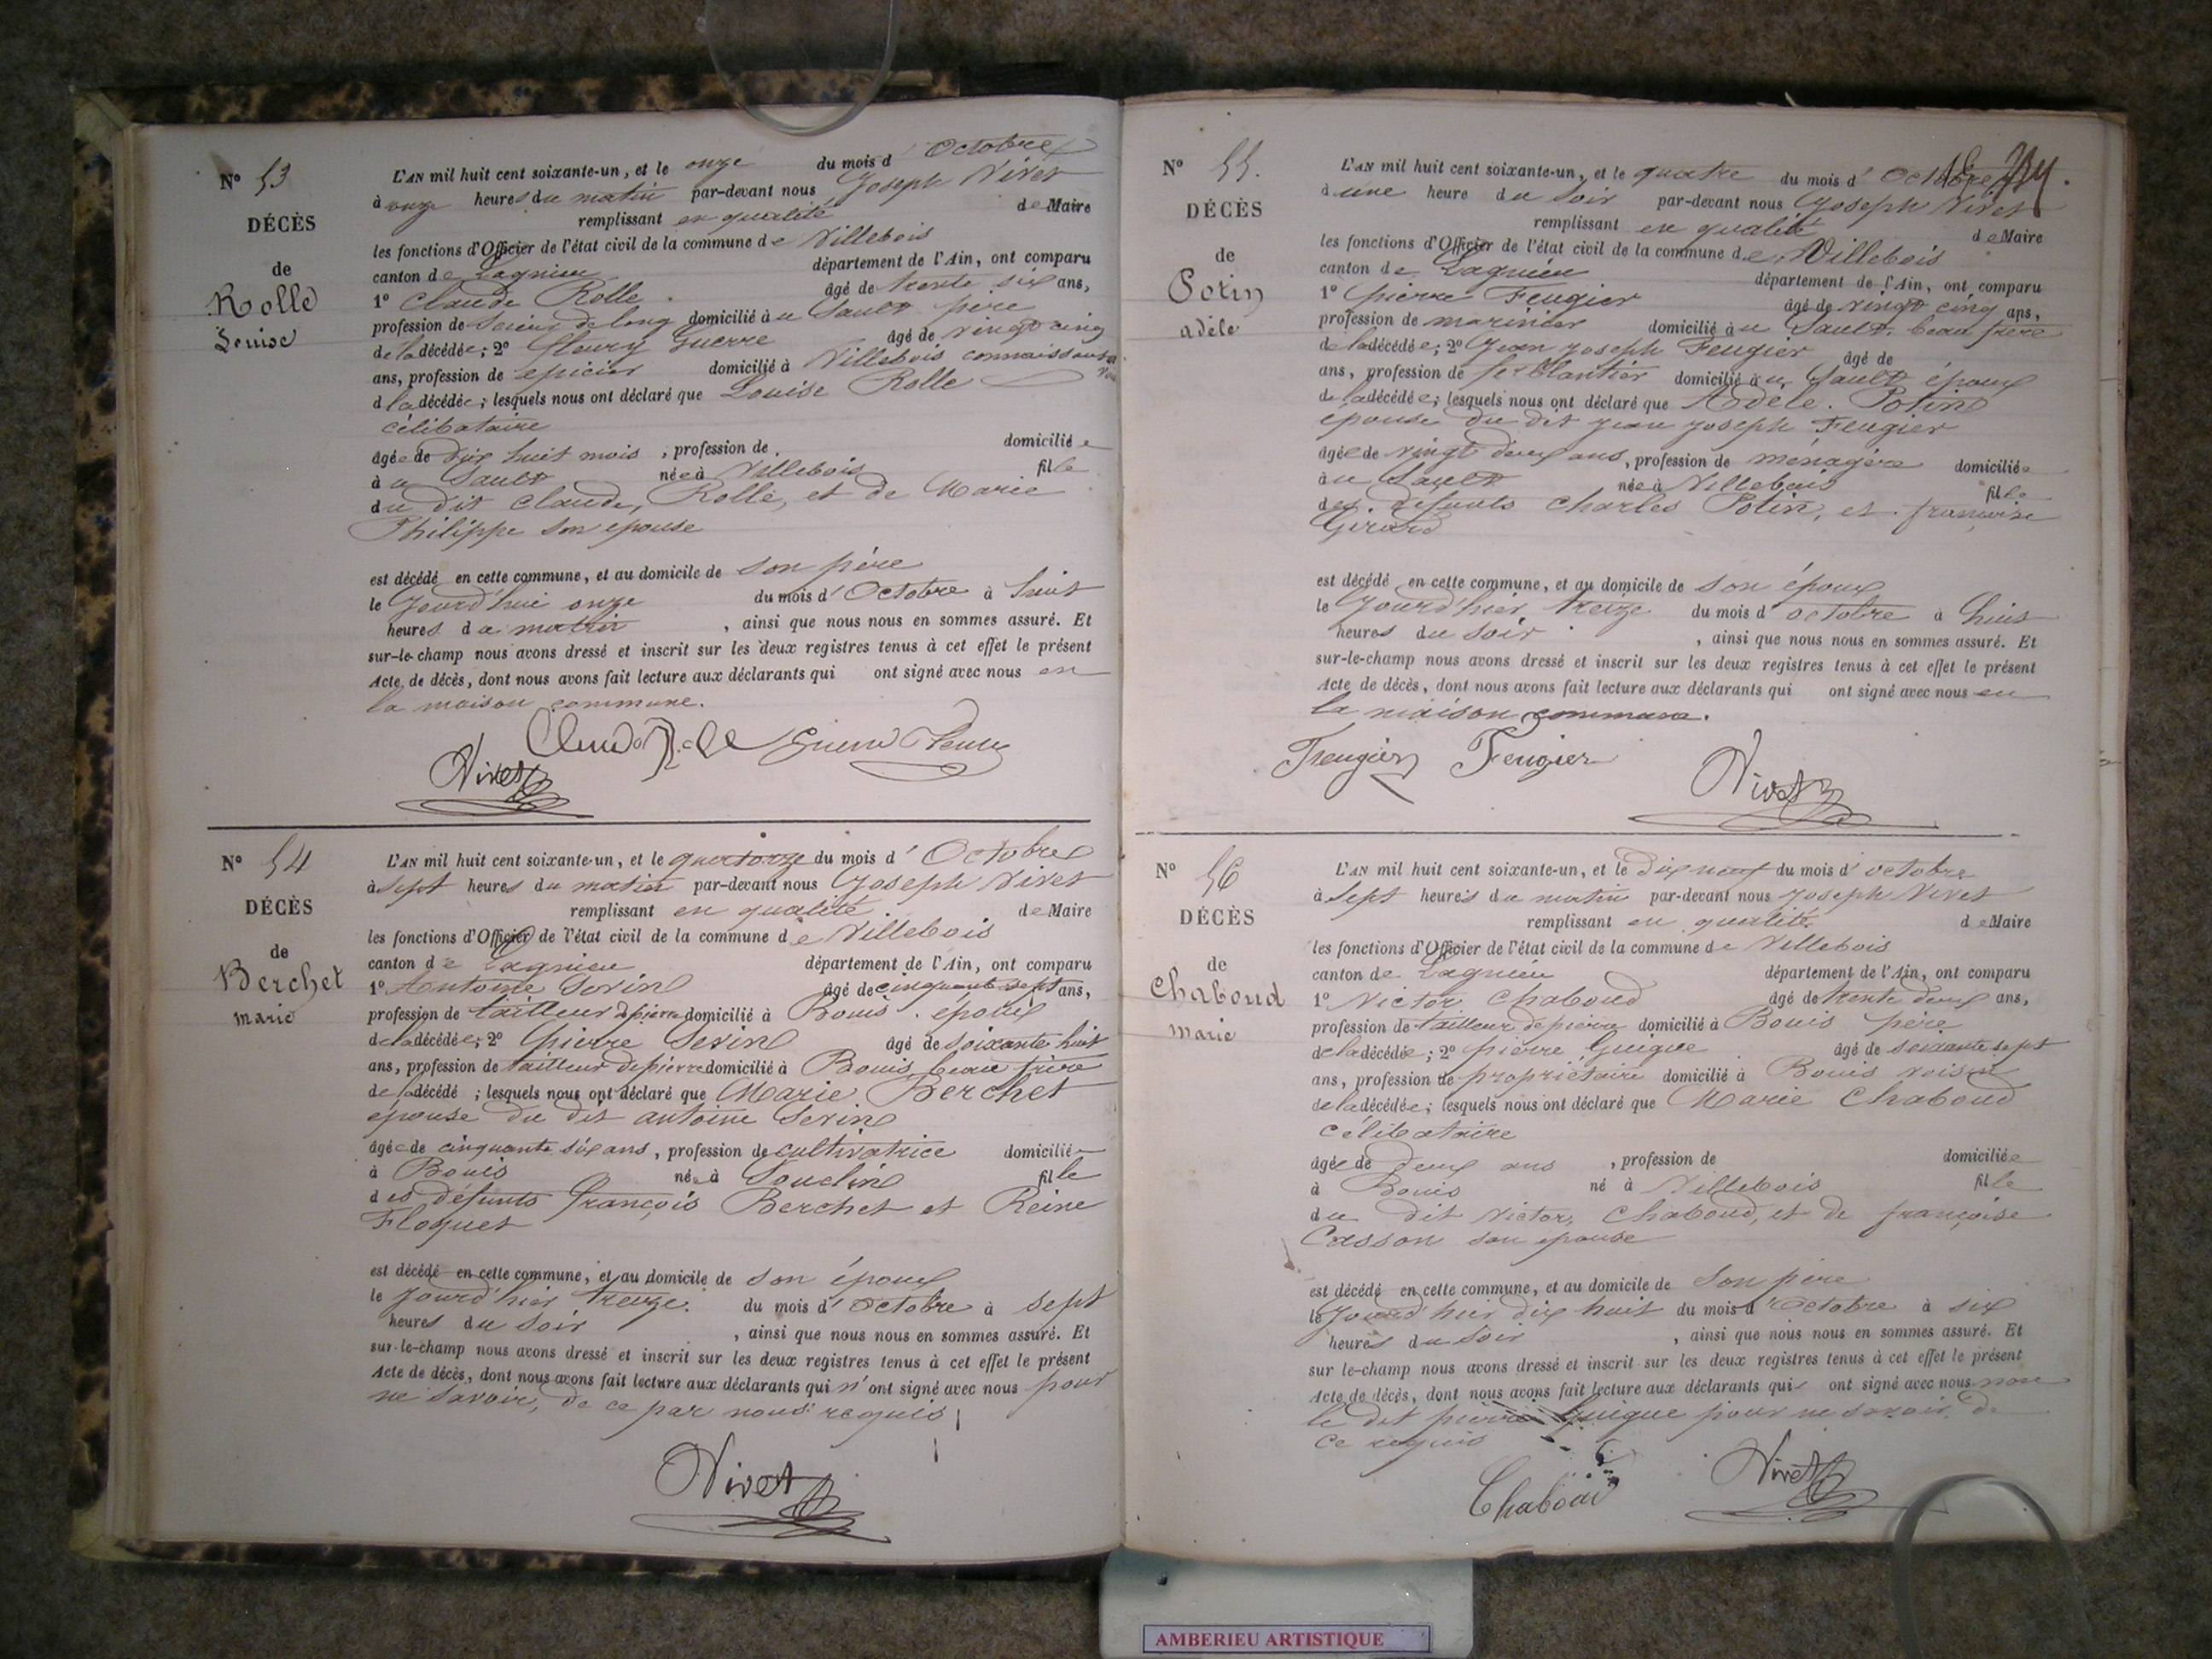 N° 53
DÉCÈS
de
Rolle
Louise
L'AN mil huit cent soixante-un, et le onze du mois d'Octobre
à onze heures du matin par-devant nous Joseph Nivet
remplissant en qualité de Maire
les fonctions d'Officier de l'état civil de la commune de Villebois
canton de Lagnieu département de l'Ain, ont comparu
1° Claude Rolle âgé de trente six ans,
profession de Scieur de long domicilié au Sault père
de la décédée; 2° fleury Guerre âgé de vingt cinq
ans, profession de epicier domicilié à Villebois connaissant
d la décédée; lesquels nous ont déclaré que Louise Rolle
célibataire
âgée de dix huit mois, profession de domiciliée
au Sault née à Villebois fille
du dit Claude, Rolle, et de Marie
Philippe son epouse
est décédé en cette commune, et au domicile de son père
le Jourd'hui onze du mois d'Octobre à huit
heures du matin, ainsi que nous nous en sommes assuré. Et
sur-le-champ nous avons dressé et inscrit sur les deux registres tenus à cet effet le présent
Acte de décès, dont nous avons fait lecture aux déclarants qui ont signé avec nous en
la maison commune.
Nivet
N° 54
DÉCÈS
de
Berchet
marie
L'AN mil huit cent soixante-un, et le quatorze du mois d'Octobre
à sept heures du matin par-devant nous Joseph Nivet
remplissant en qualité de Maire
les fonctions d'Officier de l'état civil de la commune de Villebois
canton de Lagnieu département de l'Ain, ont comparu
1° Antoine Serin âgé de cinquante sept ans,
profession de tailleur de pierre domicilié à Bouis époux
de la décédée; 2° Pierre Serin âgé de soixante huit
ans, profession de tailleur de pierre domicilié à Bouis beau frère
de la décédé; lesquels nous ont déclaré que Marie Berchet
épouse du dit antoine Serin
âgée de cinquante six ans, profession de cultivatrice domiciliée
à Bouis née à Souclin fille
des défunts François Berchet et Reine
Floquet
est décédé en cette commune, et au domicile de son époux
le jourd'hier treize. du mois d'Octobre à sept
heures du soir, ainsi que nous nous en sommes assuré. Et
sur-le-champ nous avons dressé et inscrit sur les deux registres tenus à cet effet le présent
Acte de décès, dont nous avons fait lecture aux déclarants qui n'ont signé avec nous pour
ne savoir, de ce par nous requis
Nivet
N° 55.
DÉCÈS
de
Potin
adèle
L'AN mil huit cent soixante-un, et le quatre du mois d'Octobre
à une heure du soir par-devant nous Joseph Nivet
remplissant en qualité de Maire
les fonctions d'Officier de l'état civil de la commune de Villebois
canton de Lagnieu département de l'Ain, ont comparu
1° pierre Feugier âgé de vingt cinq ans,
profession de marinier domicilié au Sault. beau frère
de la décédée; 2° Jean Joseph Feugier âgé de
ans, profession de domicilié au Sault époux
de la décédée; lesquels nous ont déclaré que Adèle. Potin
épouse du dit jean joseph Feugier
âgée de vingt deux ans, profession de ménagère domiciliée
au Sault née à Villebois fille
des défunts Charles Potin, et françoise
Girard
est décédé en cette commune, et au domicile de son époux
le Jourd'hier, treize du mois d'octobre à huit
heures du soir, ainsi que nous nous en sommes assuré. Et
sur-le-champ nous avons dressé et inscrit sur les deux registres tenus à cet effet le présent
Acte de décès, dont nous avons fait lecture aux déclarants qui ont signé avec nous en
la maison commune.
Feugier Feugier Nivet
N° 56
DÉCÈS
de
Chaboud
marie
L'AN mil huit cent soixante-un, et le Dix neuf du mois d'octobre
à sept heures du matin par-devant nous Joseph Nivet
remplissant en qualité. de Maire
les fonctions d'Officier de l'état civil de la commune de Villebois
canton de Lagnieu département de l'Ain, ont comparu
1° Victor Chaboud âgé de trente deux ans,
profession de tailleur de pierre domicilié à Bouis père
de la décédée; 2° pierre Guigue âgé de soixante sept
ans, profession de propriétaire domicilié à Bouis voisin
de la décédée; lesquels nous ont déclaré que Marie Chaboud
célibataire
âgée de deux ans, profession de domiciliée
à Bouis né à Villebois fille
du dit Victor, Chaboud, et de françoise
Casson son epouse
est décédé en cette commune, et au domicile de Son père
le Jourd'hier dix huit du mois d'Octobre à six
heures du soir, ainsi que nous nous en sommes assuré. Et
sur le-champ nous avons dressé et inscrit sur les deux registres tenus à cet effet le présent
Acte de décès, dont nous avons fait lecture aux déclarants qui ont signé avec nous non
le dit pierre Guigue pour ne savoir, de
ce requis
Chaboud Nivet
AMBERIEU ARTISTIQUE